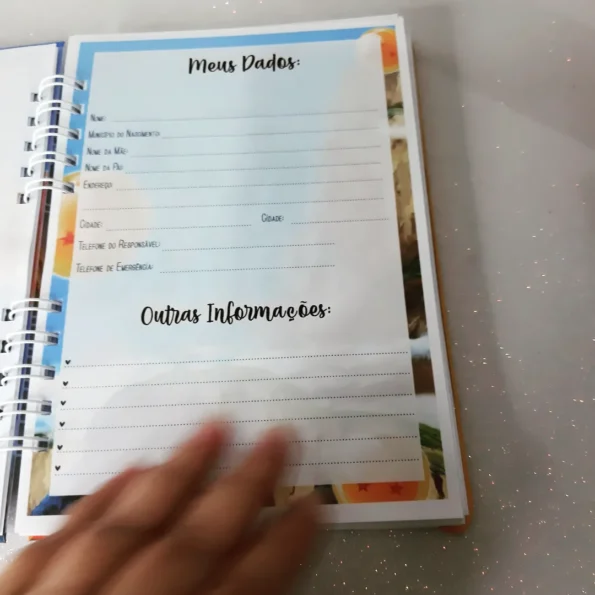 Meus Dados:
Nome:
Município do Nascimento:
Nome da Mãe:
Nome da Pai:
Endereço:
Cidade: Cidade:
Telefone do Responsável:
Telefone de Emergência:
Outras Informações: